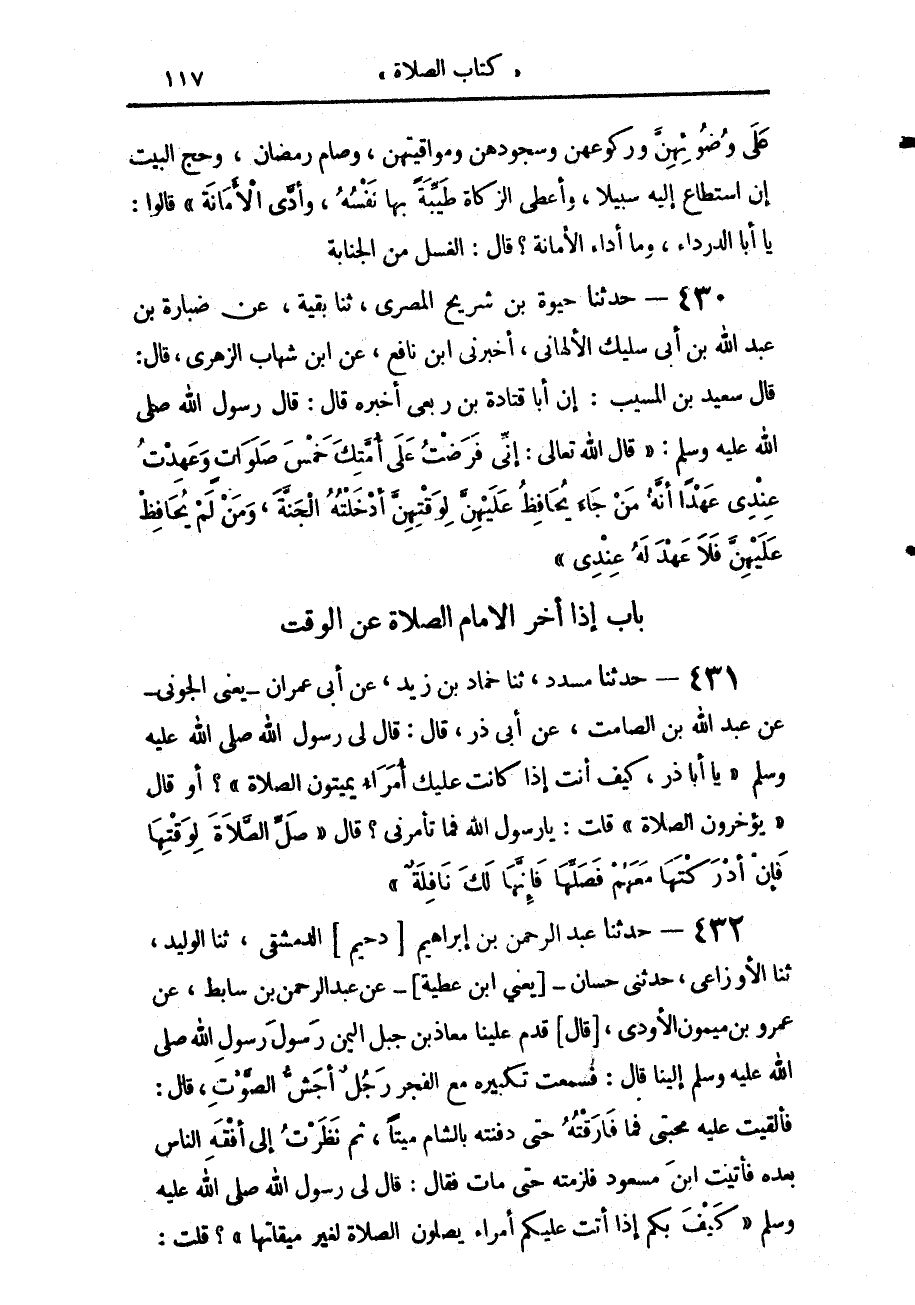 « كتاب الصلاة » ١١٧
عَلَى وُضُوئِهِنَّ وركوعهن وسجودهن ومواقيتهن ، وصام رمضان ، وحج البيت
إن استطاع إليه سبيلا ، وأعطى الزكاة طَيِّبَةً بها نَفْسُهُ ، وأدَّى الْأَمَانَةَ » قالوا :
يا أبا الدرداء ، وما أداء الأمانة ؟ قال : الغسل من الجنابة
٤٣٠ — حدثنا حيوة بن شريح المصرى ، ثنا بقية ، عن ضبارة بن
عبد الله بن أبى سليك الألهانى ، أخبرنى ابن نافع ، عن ابن شهاب الزهرى ، قال :
قال سعيد بن المسيب : إن أبا قتادة بن ربعى أخبره قال : قال رسول الله صلى
الله عليه وسلم : « قال الله تعالى : إنِّى فَرَضْتُ عَلَى أُمَّتِكَ خَمْسَ صَلَوَاتٍ وَعَهِدْتُ
عِنْدِى عَهْدًا أنَّهُ مَنْ جَاءَ يُحَافِظُ عَلَيْهِنَّ لِوَقْتِهِنَّ أدْخَلْتُهُ الْجَنَّةَ ، وَمَنْ لَمْ يُحَافِظْ
عَلَيْهِنَّ فَلَا عَهْدَ لَهُ عِنْدِى »
باب إذا أخر الامام الصلاة عن الوقت
٤٣١ — حدثنا مسدد ، ثنا حماد بن زيد ، عن أبى عمران -يعنى الجونى-
عن عبد الله بن الصامت ، عن أبى ذر ، قال : قال لى رسول الله صلى الله عليه
وسلم « يا أبا ذر ، كيف أنت إذا كانت عليك أُمَرَاء يميتون الصلاة » ؟ أو قال
« يؤخرون الصلاة » قلت : يارسول الله فما تأمرنى ؟ قال « صَلِّ الصَّلَاةَ لِوَقْتِهَا
فَإِنْ أدْرَكْتَهَا مَعَهُمْ فَصَلِّهَا فَإِنَّهَا لَكَ نَافِلَةٌ »
٤٣٢ — حدثنا عبد الرحمن بن إبراهيم [ دحيم ] الدمشقى ، ثنا الوليد ،
ثنا الأوزاعى ، حدثنى حسان - [يعني ابن عطية] - عن عبدالرحمن بن سابط ، عن
عمرو بن ميمون الأودى ، [قال] قدم علينا معاذ بن جبل اليمن رَسُولُ رَسولِ الله صلى
الله عليه وسلم إلينا قال : فسمعت تكبيره مع الفجر رَجُلٌ أجَشُّ الصَّوْتِ ، قال :
فألقيت عليه محبتى فما فَارَقْتُهُ حتى دفنته بالشام ميتاً ، ثم نَظَرْتُ إلى أفْقَهِ الناس
بعده فأتيت ابنَ مسعود فلزمته حتى مات فقال : قال لى رسول الله صلى الله عليه
وسلم « كَيْفَ بكم إذا أتت عليكم أمراء يصلون الصلاة لغير ميقاتها » ؟ قلت :